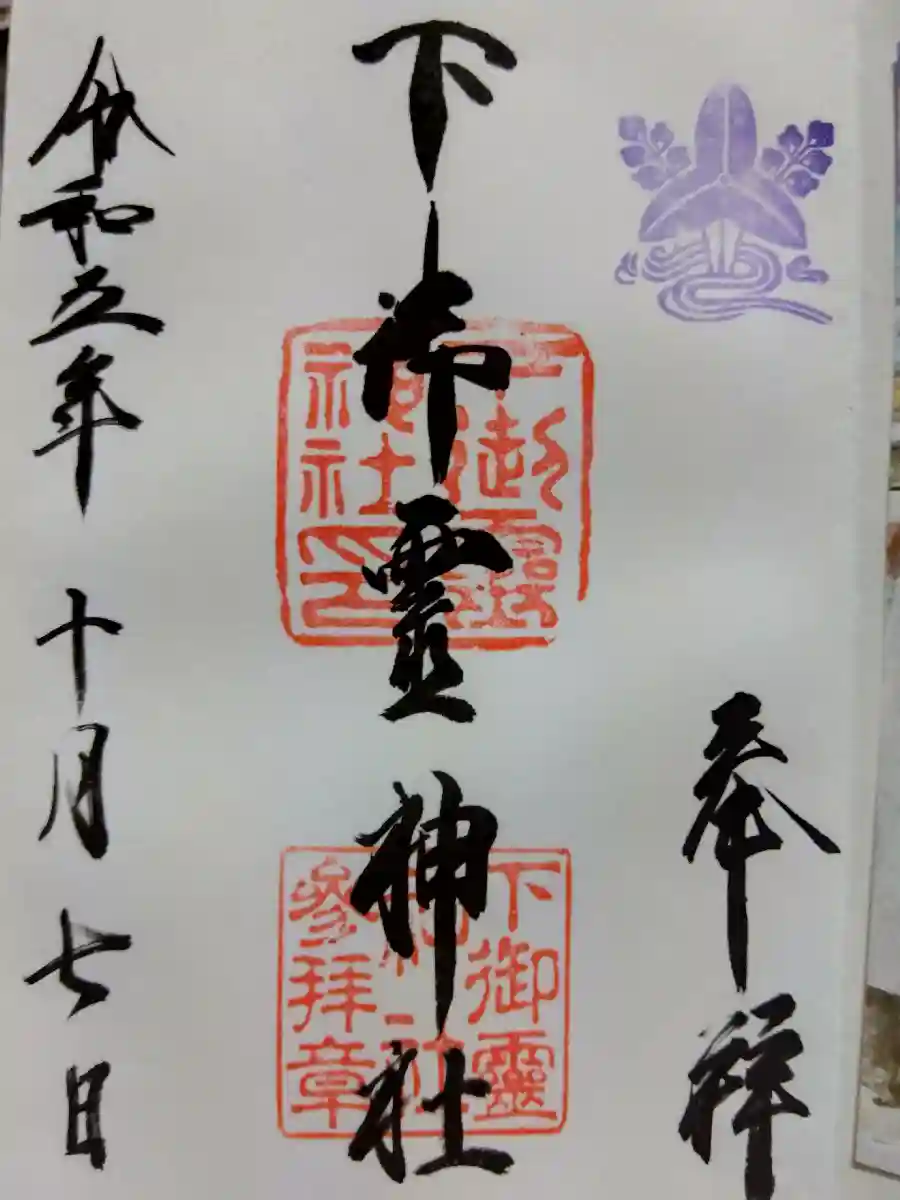 奉拝
下御靈神社
下御靈神社印
下御靈神社參拝章
令和五年 十月 七日